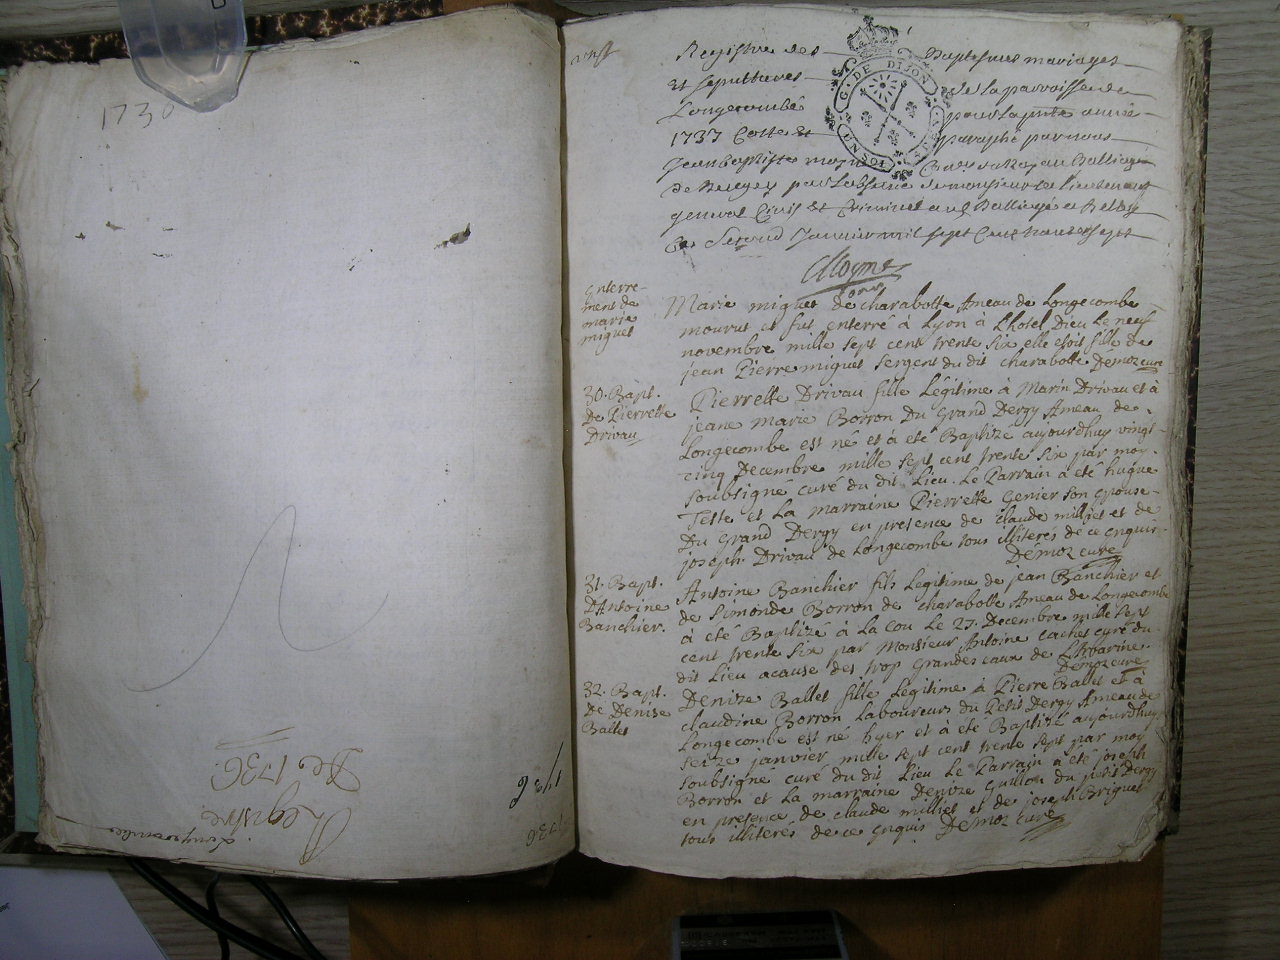 1730
Registre
De 1736.
Longecombe
1736
1736
Registre des Baptesmes mariages
et sepultures de la parroisse de
Longecombe pour la pnte année
1737 Cotté et paraphé par nous
Jean Baptiste Coner du Roy au Balliage
de Bugey pour l'absence de monsieur le lieutenant
general Civil et Criminel au Balliage de Belley
Ce Second Janvier mil sept Cent trente sept
G. DE DIJON
enterre-
ment de
marie
miguet
Marie miguet de charabotte Ameau de Longecombe
mourut et fut enterré à Lyon à L'hotel Dieu Le neuf
novembre mille sept cent trente six elle etoit fille de
jean Pierre miguet sergent du dit charabotte Démoz curé
30. Bapt.
De Pierrette
Drivau
Pierrette Drivau fille Légitime à Marin Drivau et à
jeane Marie Borron Du Grand Dergy Ameau de
Longecombe est né et à été Baptizé aujourdhuy vingt
cinq Decembre mille sept cent trente six par moy
soubsigné curé du dit Lieu. Le Parrain à été hugue
Teste et La marraine Pierrette Genier son epouse
Du Grand Dergy en presence de claude milliet et de
joseph Drivau de Longecombe tous illiterés de ce enquis
Démoz curé
31. Bapt.
D'Antoine
Banchier.
Antoine Banchier fils Legitime de jean Banchier et
de Simonde Borron de charabotte Ameau de Longecombe
à été Baptizé à La cou Le 27. Decembre mille sept
cent trente six par Monsieur Antoine cachet curé du
dit Lieu acause des trop Grandes eaux de L'Albarine.
Démoz curé
32. Bapt.
De Denise
Ballet
Denize Ballet fille Légitime à Pierre Ballet et à
claudine Borron Laboureurs du Petit Dergy Ameau de
Longecombe est né hyer et à été Baptizé aujourdhuy
seize janvier mille sept cent trente sept par moy
soubsigné curé du dit Lieu Le Parrain à été joseph
Borron et La marraine Denize Guillon du petit Dergy
en presence de claude milliet et de joseph Briguet
tous illiterés de ce enquis Démoz curé